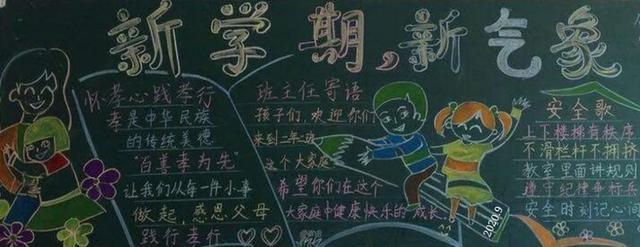 新学期,新气象
怀孝心践孝行
孝是中华民族
的传统美德
“百善孝为先”
让我们从每一件小事
做起,感恩父母
践行孝行
班主任寄语
孩子们,欢迎你们
来到二年一班
这个大家庭
希望你们在这个
大家庭中健康快乐的成长。
2020.9
安全歌
上下楼梯有秩序
不滑栏杆不拥挤
教室里面讲规则
遵守纪律争标兵
安全时刻记心间